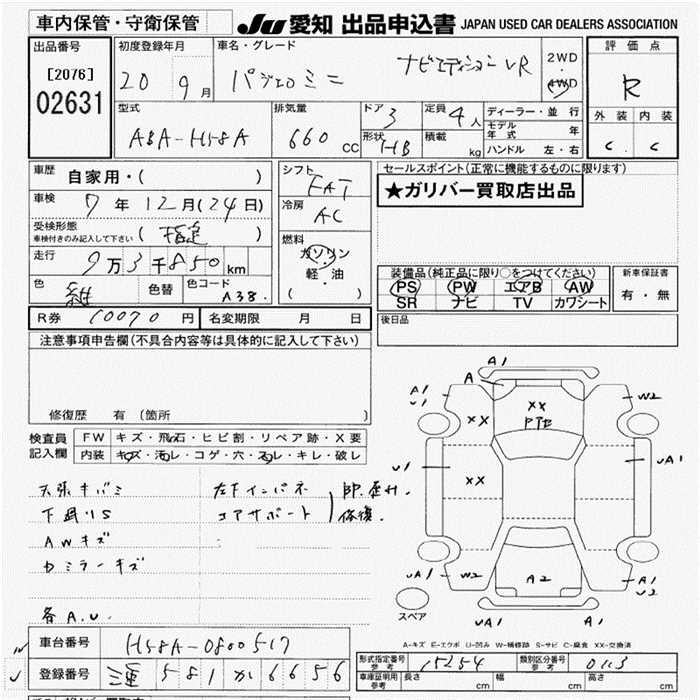 車内保管・守衛保管
JU 愛知 出品申込書 JAPAN USED CAR DEALERS ASSOCIATION
出品番号
[2076]
02631
初度登録年月
20 9月
車名・グレード
パジェロミニ ナビエディションVR
2WD
4WD
評価点
R
外装 内装
C C
型式
ABA-H58A
排気量
660 cc
ドア 3
形状 HB
定員 4人
積載 kg
ディーラー・並行
モデル年式 年
ハンドル 左・右
車歴 自家用・( )
車検 7年12月(24日)
受検形態 (指定)
車検付きのみ記入して下さい
走行 9万3千850km
色 紺 色替 色コード A38
シフト FAT
冷房 AC
燃料
ガソリン
軽・油
( ・ )
セールスポイント(正常に機能するものに限ります)
★ガリバー買取店出品
装備品(純正品に限り○をつけてください)
PS PW エアB AW
SR ナビ TV カワシート
新車保証書
有・無
後日品
R券 10070円 名変期限 月 日
注意事項申告欄(不具合内容等は具体的に記入して下さい)
修復歴 有(箇所
検査員記入欄
FW キズ・飛石・ヒビ割・リペア跡・X要
内装 キズ・汚レ・コゲ・穴・スレ・キレ・破レ
天張キバミ
下廻りS
AWキズ
カミラーキズ
各A.U.
左下インパネ
コアサポート
修復
A1
A
A1
U1
XX
XX
W2
U1
XX
UA1
UA1
W2
A2
A1
U1
UA1
A1
スペア
A-キズ E-エクボ U-凹み W-補修跡 S-サビ C-腐食 XX-交換済
車台番号 H58A-0800517
登録番号 581 か 6656
形式指定番号 参考 15254
類別区分番号 参考 0113
車庫証明用 参考 長さ cm 幅 cm 高さ cm